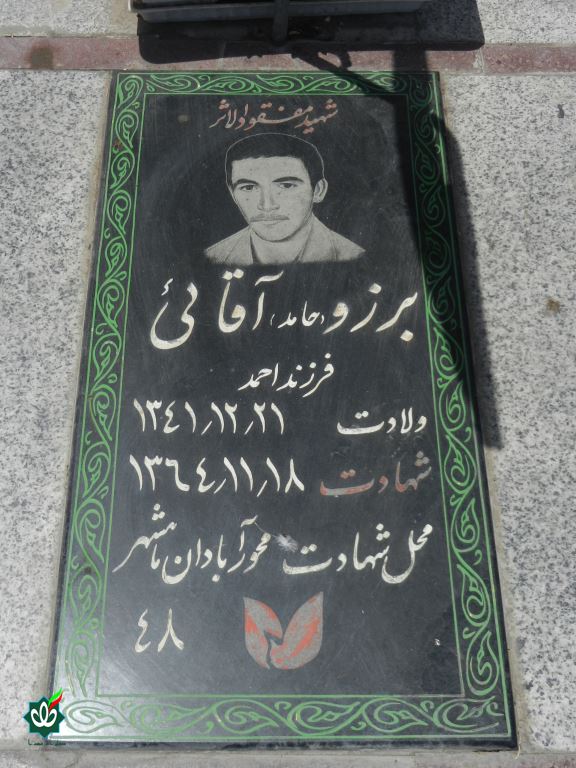 شهید مفقودلاثر
برزو (حامد) آقائی
فرزند احمد
ولادت ۱۳۴۱٫۱۲٫۲۱
شهادت ۱۳٦٤٫۱۱٫۱۸
محل شهادت محور آبادان ماهشهر
٤۸